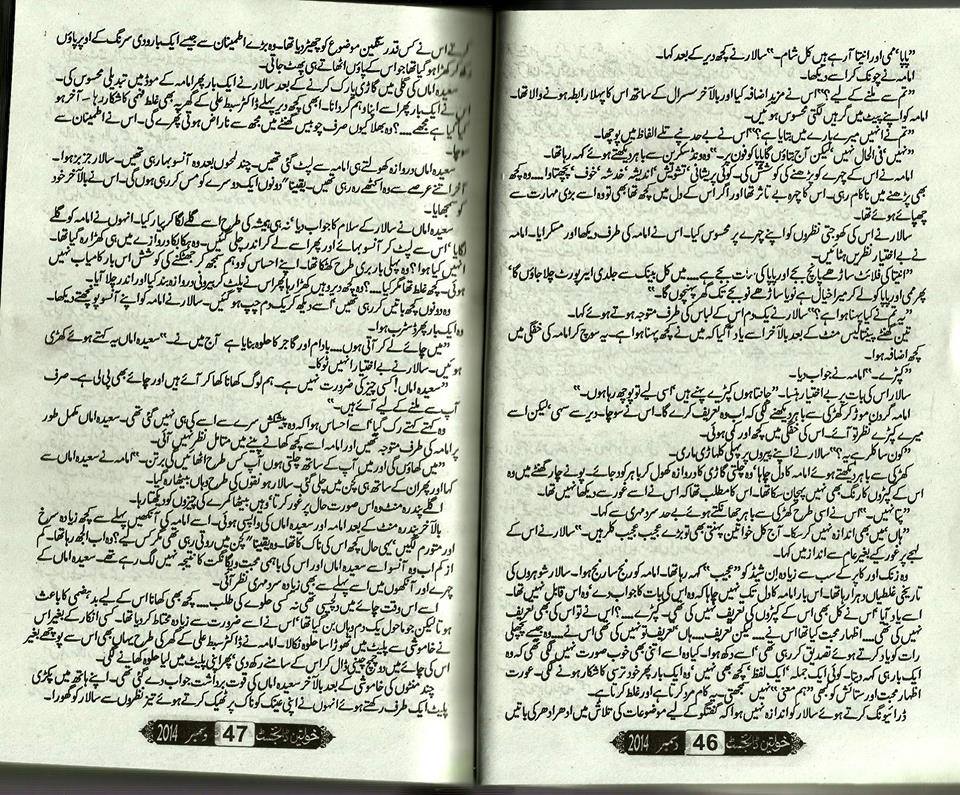 ”پاپا‘ ممی اور انیتا آ رہے ہیں کل شام۔“ سالار نے کچھ دیر کے بعد کہا۔
امامہ نے چونک کر اسے دیکھا۔
”تم سے ملنے کے لیے؟“ اس نے مزید اضافہ کیا اور بالآخر سسرال کے ساتھ اس کا پہلا رابطہ ہونے والا تھا۔
امامہ کو اپنے پیٹ میں گرہیں لگتی محسوس ہوئیں۔
”تم نے انہیں میرے بارے میں بتایا ہے؟“ اس نے بے حد نپے تلے الفاظ میں پوچھا۔
”نہیں‘ فی الحال نہیں‘ لیکن آج بتاؤں گا پاپا کو فون پر۔“ وہ ونڈ سکرین سے باہر دیکھتے ہوئے کہہ رہا تھا۔
امامہ نے اس کے چہرے کو پڑھنے کی کوشش کی۔ کوئی پریشانی‘ تشویش‘ اندیشہ‘ خدشہ‘ خوف‘ پچھتاوا.... وہ کچھ
بھی پڑھنے میں ناکام رہی۔ اس کا چہرہ بے تاثر تھا اور اگر اس کے دل میں کچھ تھا بھی تو وہ اسے بڑی مہارت سے
چھپائے ہوئے تھا۔
سالار نے اس کی کھوجتی نظروں کو اپنے چہرے پر محسوس کیا۔ اس نے امامہ کی طرف دیکھا اور مسکرایا۔ امامہ
نے بے اختیار نظریں ہٹائیں۔
”انیتا کی فلائٹ ساڑھے پانچ بجے اور پاپا کی سات بجے ہے.... میں کل بینک سے جلدی ایئرپورٹ چلا جاؤں گا‘
پھر ممی اور پاپا کو لے کر میرا خیال ہے نو یا ساڑھے نو بجے تک گھر پہنچوں گا۔“
”یہ تم نے کیا پہنا ہوا ہے؟“ سالار نے یک دم اس کے لباس کی طرف متوجہ ہوتے ہوئے کہا۔
تین گھنٹے پینتالیس منٹ کے بعد بالآخر اسے یاد آ گیا کہ میں نے کچھ پہنا ہوا ہے۔ یہ سوچ کر امامہ کی خفگی میں
کچھ اضافہ ہوا۔
”کپڑے۔“ امامہ نے جواب دیا۔
سالار اس کی بات پر بے اختیار ہنسا۔ ”جانتا ہوں کپڑے پہنے ہیں‘ اسی لیے تو پوچھ رہا ہوں۔“
امامہ گردن موڑ کر کھڑکی سے باہر دیکھنے لگی کہ اب وہ تعریف کرے گا۔ اس نے سوچا دیر سے سہی‘ لیکن اسے
میرے کپڑے نظر تو آئے۔ اس کی خفگی میں کچھ اور کمی ہوئی۔
”کون سا کلر ہے یہ؟“ سالار نے اپنے پیروں پر پہلی کلہاڑی ماری۔
کھڑکی سے باہر دیکھتے ہوئے امامہ کا دل چاہا‘ وہ چلتی گاڑی کا دروازہ کھول کر باہر کود جائے۔ پونے چار گھنٹے میں وہ
اس کے کپڑوں کا رنگ بھی نہیں پہچان سکا تھا۔ اس کا مطلب تھا کہ اس نے اسے غور سے دیکھا نہیں تھا۔
”پتا نہیں۔“ اس نے اسی طرح کھڑکی سے باہر جھانکتے ہوئے بے حد سردمہری سے کہا۔
”ہاں میں بھی اندازہ نہیں کر سکا۔ آج کل خواتین پہنتی بھی تو بڑے عجیب عجیب کلر ہیں۔“ سالار نے اس کے
لہجے پر غور کیے بغیر عام سے انداز میں کہا۔
وہ زنک اور کاپر کے سب سے زیادہ اِن شیڈ کو ”عجیب“ کہہ رہا تھا۔ امامہ کو رنج سا رنج ہوا۔ سالار شوہروں کی
تاریخی غلطیاں دہرا رہا تھا۔ اس بار امامہ کا دل تک نہیں چاہا کہ وہ اس کی بات کا جواب دے‘ وہ اس قابل نہیں تھا۔
اسے یاد آیا‘ اس نے کل بھی اس کے کپڑوں کی تعریف نہیں کی تھی۔ کپڑے....؟ اس نے تو اس کی بھی تعریف
نہیں کی تھی.... اظہار محبت کیا تھا اس نے.... لیکن تعریف.... ہاں‘ تعریف تو نہیں کی تھی اس نے.... وہ جیسے پچھلی
رات کو یاد کرتے ہوئے تصدیق کر رہی تھی‘ اسے دکھ ہوا۔ کیا وہ اسے اتنی بھی خوب صورت نہیں لگی تھی کہ وہ
ایک بار ہی کہہ دیتا۔ کوئی ایک جملہ‘ ایک لفظ‘ کچھ بھی نہیں‘ وہ ایک بار پھر خود ترسی کا شکار ہونے لگی۔ عورت
اظہار محبت اور ستائش کو کبھی ”ہم معنی“ نہیں سمجھتی۔ یہ کام مرد کرتا ہے اور غلط کرتا ہے۔
ڈرائیونگ کرتے ہوئے سالار کو اندازہ نہیں ہوا کہ گفتگو کے لیے موضوعات کی تلاش میں ادھر ادھر کی باتیں
خواتین ڈائجسٹ 46 دسمبر 2014
کرتے اس نے کس قدر سنگین موضوع کو چھیڑ دیا تھا۔ وہ بڑے اطمینان سے جیسے ایک بارودی سرنگ کے اوپر پاؤں
رکھ کر کھڑا ہو گیا تھا جو اس کے پاؤں اٹھاتے ہی پھٹ جاتی۔
سعیدہ اماں کی گلی میں گاڑی پارک کرنے کے بعد سالار نے ایک بار پھر امامہ کے موڈ میں تبدیلی محسوس کی۔
اس نے ایک بار پھر اسے اپنا وہم گردانا۔ ابھی کچھ دیر پہلے ڈاکٹر سبط علی کے گھر پہ بھی غلط فہمی کا شکار رہا۔ آخر ہو
کیا گیا ہے مجھے....؟ وہ بھلا کیوں صرف چوبیس گھنٹے میں مجھ سے ناراض ہوتی پھرے گی۔ اس نے اطمینان سے
سوچا۔
سعیدہ اماں دروازہ کھولتے ہی امامہ سے لپٹ گئی تھیں۔ چند لمحوں بعد وہ آنسو بہا رہی تھیں۔ سالار جزبز ہوا۔
آخر اتنے عرصے سے وہ اکٹھے رہ رہی تھیں۔ یقیناً ”دونوں ایک دوسرے کو مس کر رہی ہوں گی۔ اس نے بالآخر خود
کو سمجھایا۔
سعیدہ اماں نے سالار کے سلام کا جواب دیا‘ نہ ہی ہمیشہ کی طرح اسے گلے لگا کر پیار کیا۔ انہوں نے امامہ کو گلے
لگایا‘ اس سے لپٹ کر آنسو بہائے اور پھر اسے لے کر اندر چلی گئیں۔ وہ ہکا بکا دروازے میں ہی کھڑا رہ گیا تھا۔
انہیں کیا ہوا؟ وہ پہلی بار بری طرح کھٹکا تھا۔ اپنے احساس کو وہم سمجھ کر جھٹکنے کی کوشش اس بار کامیاب نہیں
ہوئی۔ کچھ غلط تھا مگر کیا....؟ وہ کچھ دیر وہیں کھڑا رہا پھر اس نے پلٹ کر بیرونی دروازہ بند کیا اور اندر چلا آیا۔
وہ دونوں کچھ باتیں کر رہی تھیں‘ اسے دیکھ کر یک دم چپ ہو گئیں۔ سالار نے امامہ کو اپنے آنسو پونچھتے دیکھا۔
وہ ایک بار پھر ڈسٹرب ہوا۔
”میں چائے لے کر آتی ہوں.... بادام اور گاجر کا حلوہ بنایا ہے آج میں نے۔“ سعیدہ اماں یہ کہتے ہوئے کھڑی
ہوئیں۔ سالار نے بے اختیار انہیں ٹوکا۔
”سعیدہ اماں! کسی چیز کی ضرورت نہیں ہے۔ ہم لوگ کھانا کھا کر آئے ہیں اور چائے بھی پی لی ہے۔ صرف
آپ سے ملنے کے لیے آئے ہیں۔“
وہ کہتے کہتے رک گیا‘ اسے احساس ہوا کہ وہ پیشکش سرے سے اسے کی ہی نہیں گئی تھی۔ سعیدہ اماں مکمل طور
پر امامہ کی طرف متوجہ تھیں اور امامہ اسے کچھ کھانے پینے میں متامل نظر نہیں آئی۔
”میں کھاؤں گی اور میں آپ کے ساتھ چلتی ہوں آپ کس طرح اٹھائیں گی برتن۔“ امامہ نے سعیدہ اماں سے
کہا اور پھر ان کے ساتھ ہی کچن میں چلی گئی۔ سالار ہونقوں کی طرح وہاں بیٹھا رہ گیا۔
اگلے پندرہ منٹ وہ اس صورت حال پر غور کرتا‘ وہیں بیٹھا کمرے کی چیزوں کو دیکھتا رہا۔
بالآخر پندرہ منٹ کے بعد امامہ اور سعیدہ اماں کی واپسی ہوئی۔ اسے امامہ کی آنکھیں پہلے سے کچھ زیادہ سرخ
اور متورم لگیں‘ یہی حال کچھ اس کی ناک کا تھا۔ وہ یقیناً ”کچن میں روتی رہی تھی مگر کس لیے؟ وہ اب الجھ رہا تھا۔ کم
از کم اب وہ آنسو اسے سعیدہ اماں اور اس کی باہمی محبت و یگانگت کا نتیجہ نہیں لگ رہے تھے۔ سعیدہ اماں کے
چہرے اور آنکھوں میں اسے پہلے سے بھی زیادہ سردمہری نظر آئی۔
اسے اس وقت چائے میں دلچسپی تھی نہ کسی حلوے کی طلب.... کچھ بھی کھانا اس کے لیے بدہضمی کا باعث
ہوتا لیکن جو ماحول یک دم وہاں بن گیا تھا‘ اس نے اسے ضرورت سے زیادہ محتاط کر دیا تھا۔ کسی انکار کے بغیر اس
نے خاموشی سے پلیٹ میں تھوڑا سا حلوہ نکالا۔ امامہ نے ڈاکٹر سبط علی کے گھر کی طرح یہاں بھی اس سے پوچھے بغیر
اس کی چائے میں دو چمچ چینی ڈال کر اس کے سامنے رکھ دی‘ پھر اپنی پلیٹ میں لیا حلوہ کھانے لگی۔
چند منٹوں کی خاموشی کے بعد بالآخر سعیدہ اماں کی قوت برداشت جواب دے گئی تھی۔ اپنے ہاتھ میں پکڑی
پلیٹ ایک طرف رکھتے ہوئے انہوں نے اپنی عینک کو ناک پر ٹھیک کرتے ہوئے تیز نظروں سے سالار کو گھورا۔
خواتین ڈائجسٹ 47 دسمبر 2014